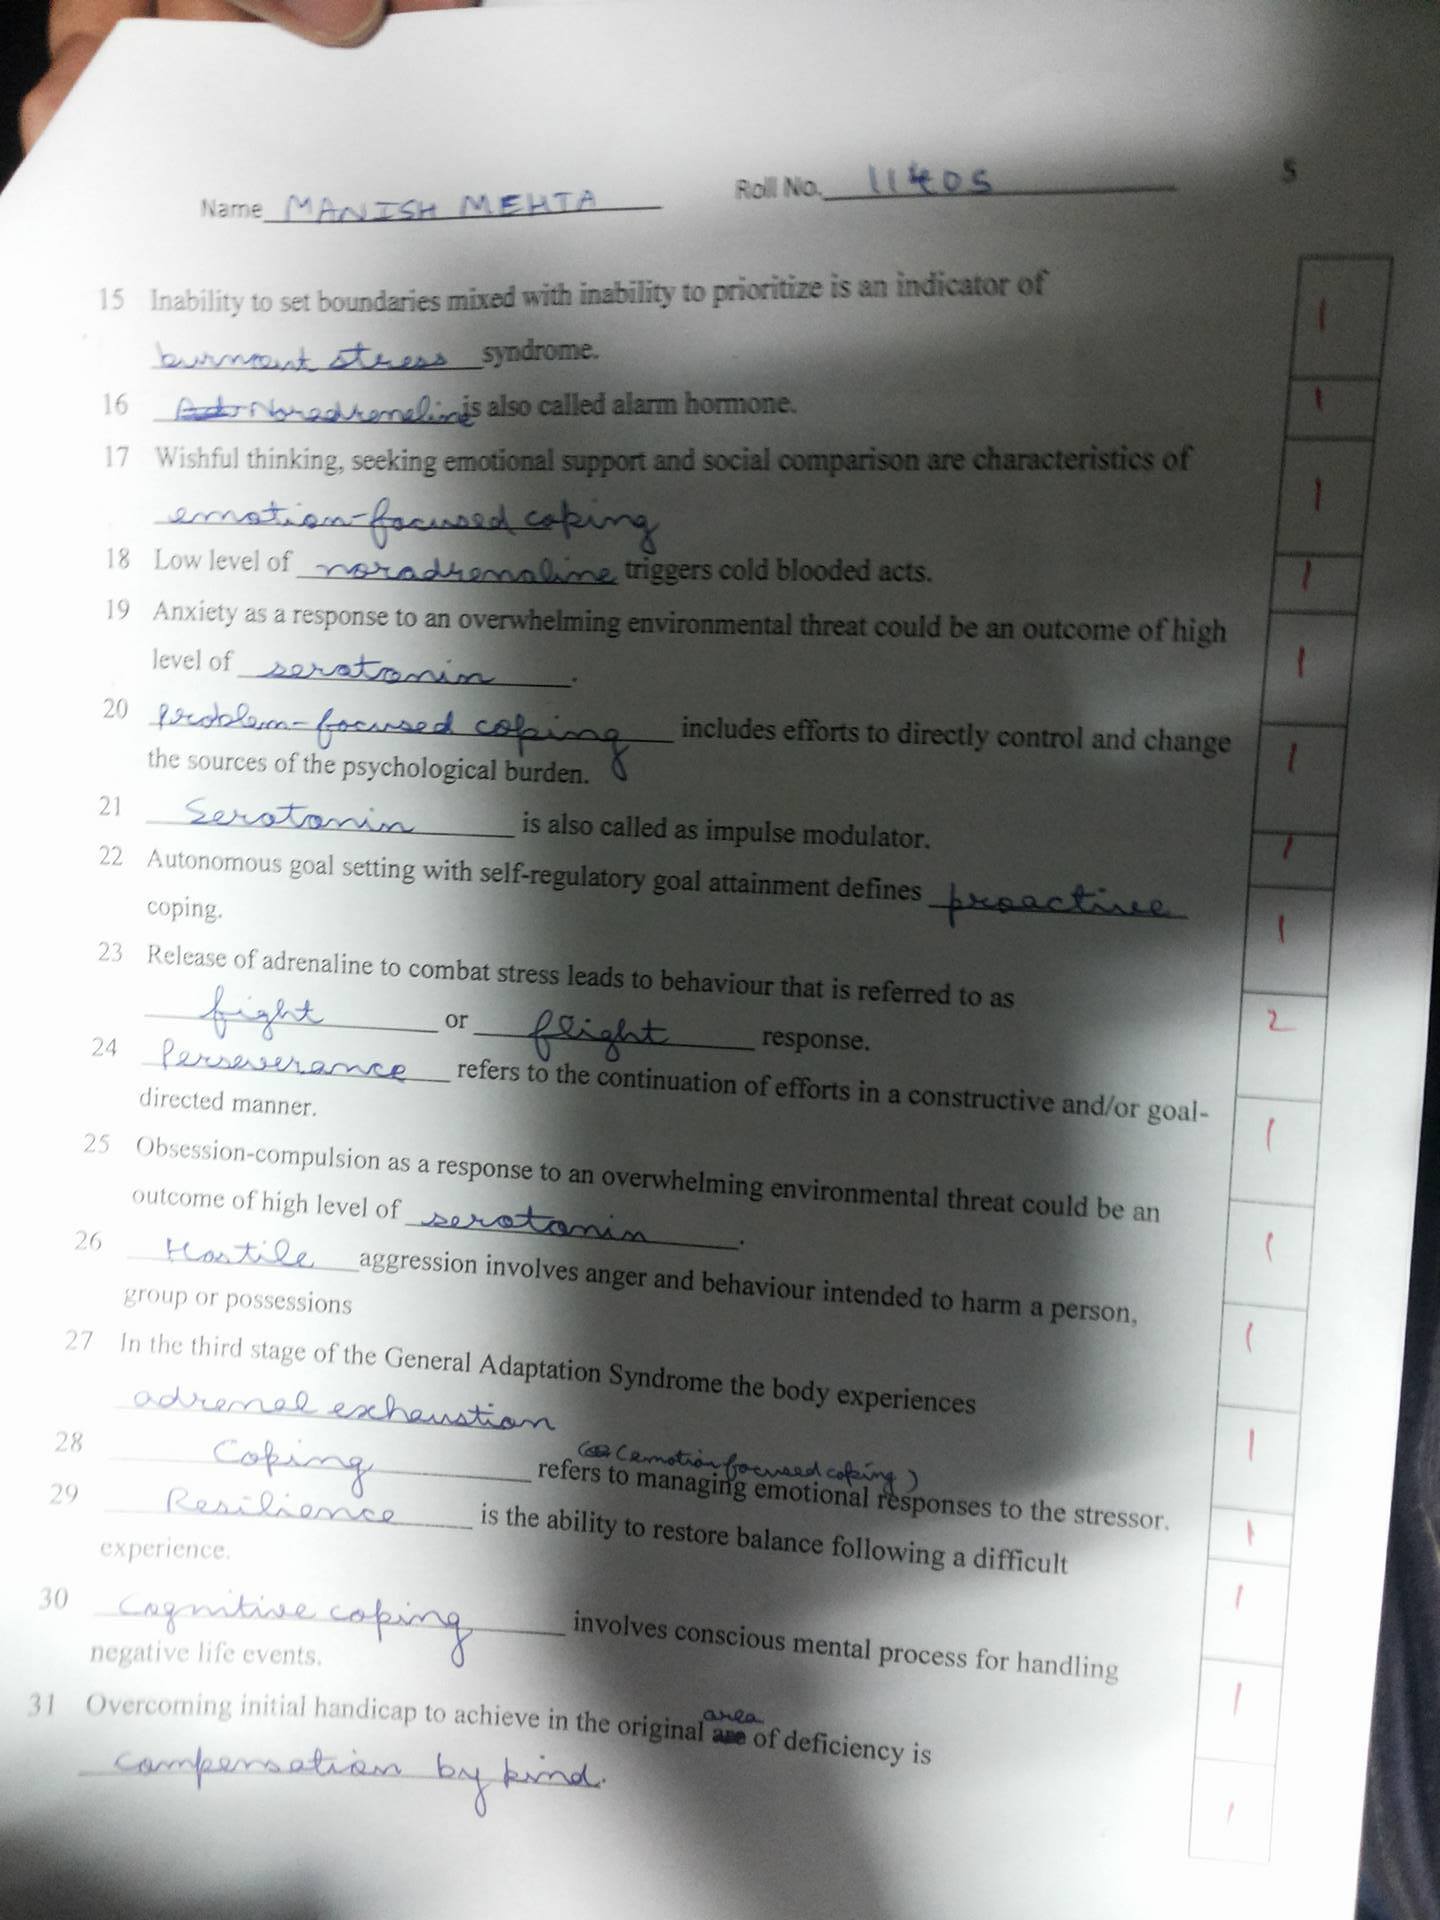 5
Name MANISH MEHTA Roll No. 11405
15 Inability to set boundaries mixed with inability to prioritize is an indicator of
burnout stress syndrome. 1
16 Noradrenaline is also called alarm hormone. 1
17 Wishful thinking, seeking emotional support and social comparison are characteristics of
emotion-focused coping 1
18 Low level of noradrenaline triggers cold blooded acts. 1
19 Anxiety as a response to an overwhelming environmental threat could be an outcome of high
level of seratonin. 1
20 Problem-focused coping includes efforts to directly control and change
the sources of the psychological burden. 1
21 Seratonin is also called as impulse modulator. 1
22 Autonomous goal setting with self-regulatory goal attainment defines proactive
coping. 1
23 Release of adrenaline to combat stress leads to behaviour that is referred to as
fight or flight response. 2
24 Perseverance refers to the continuation of efforts in a constructive and/or goal-
directed manner. 1
25 Obsession-compulsion as a response to an overwhelming environmental threat could be an
outcome of high level of seratonin. 1
26 Hostile aggression involves anger and behaviour intended to harm a person,
group or possessions 1
27 In the third stage of the General Adaptation Syndrome the body experiences
adrenal exhaustion 1
(emotion focused coping)
28 Coping refers to managing emotional responses to the stressor. 1
29 Resilience is the ability to restore balance following a difficult
experience. 1
30 Cognitive coping involves conscious mental process for handling
negative life events. 1
area
31 Overcoming initial handicap to achieve in the original are of deficiency is
compensation by kind. 1